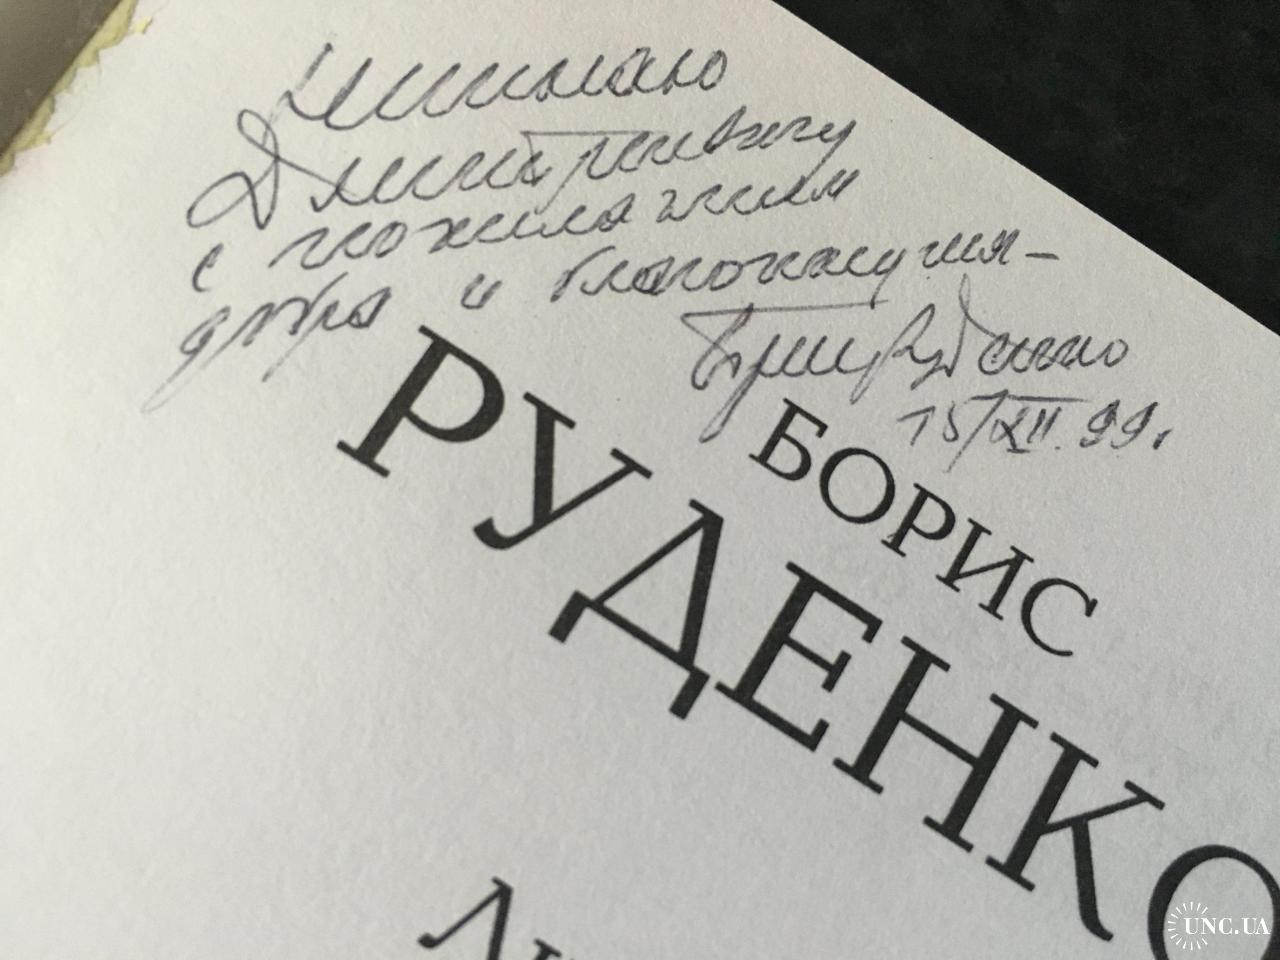 Михаилу
Дмитриевичу
с пожеланием
добра и благополучия –
15/XII.99г.
БОРИС
РУДЕНКО
UNC.UA